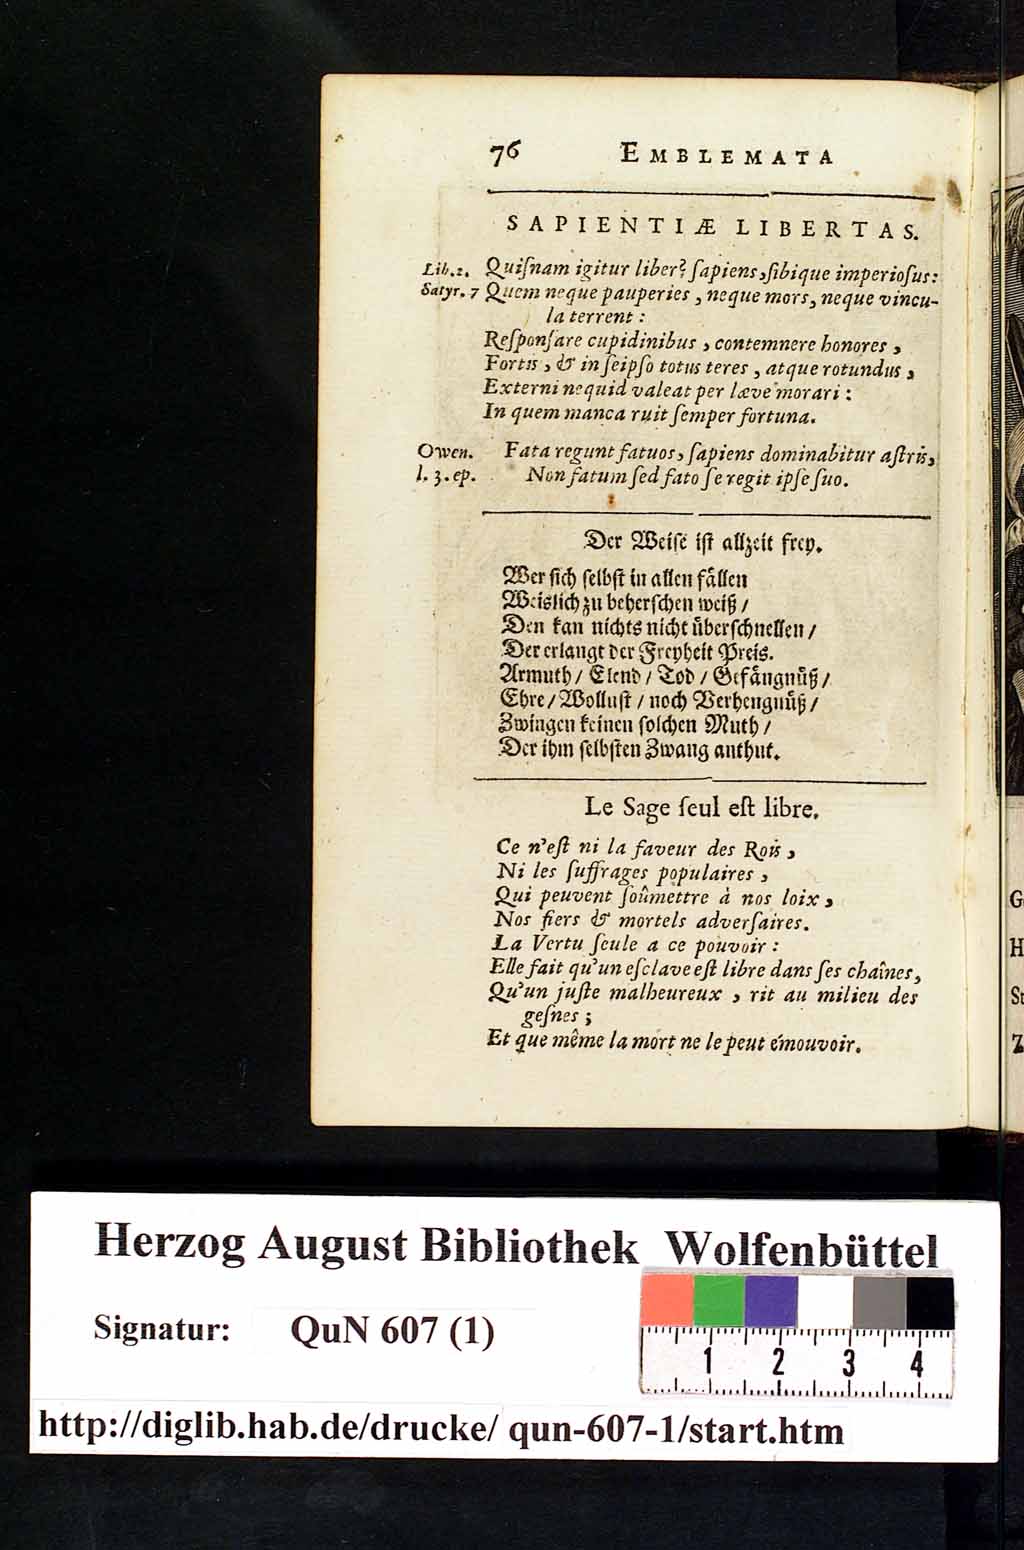 76 EMBLEMATA
SAPIENTIÆ LIBERTAS.
Lib. 2. Quiſnam igitur liber? ſapiens, ſibique imperioſus:
Satyr. 7 Quem neque pauperies, neque mors, neque vincu-
la terrent:
Reſponſare cupidinibus, contemnere honores,
Fortis, & in ſeipſo totus teres, atque rotundus,
Externi nequid valeat per læve morari:
In quem manca ruit ſemper fortuna.
Owen. Fata regunt fatuos, ſapiens dominabitur aſtris,
l. 3. ep. Non fatum ſed fato ſe regit ipſe ſuo.
Der Weiſe iſt allzeit frey.
Wer ſich ſelbſt in allen fällen
Weislich zu beherſchen weiß /
Den kan nichts nicht überſchnellen /
Der erlangt der Freyheit Preis.
Armuth / Elend / Tod / Gefängnüß /
Ehre / Wolluſt / noch Verhengnüß /
Zwingen keinen ſolchen Muth /
Der ihm ſelbſten Zwang anthut.
Le Sage ſeul eſt libre.
Ce n'eſt ni la faveur des Rois,
Ni les ſuffrages populaires,
Qui peuvent ſoûmettre à nos loix,
Nos fiers & mortels adverſaires.
La Vertu ſeule a ce pouvoir:
Elle fait qu'un eſclave eſt libre dans ſes chaînes,
Qu'un juſte malheureux, rit au milieu des
geſnes;
Et que même la mort ne le peut émouvoir.
G
H
St
Z
Herzog August Bibliothek Wolfenbüttel
Signatur: QuN 607 (1)
1 2 3 4
http://diglib.hab.de/drucke/ qun-607-1/start.htm